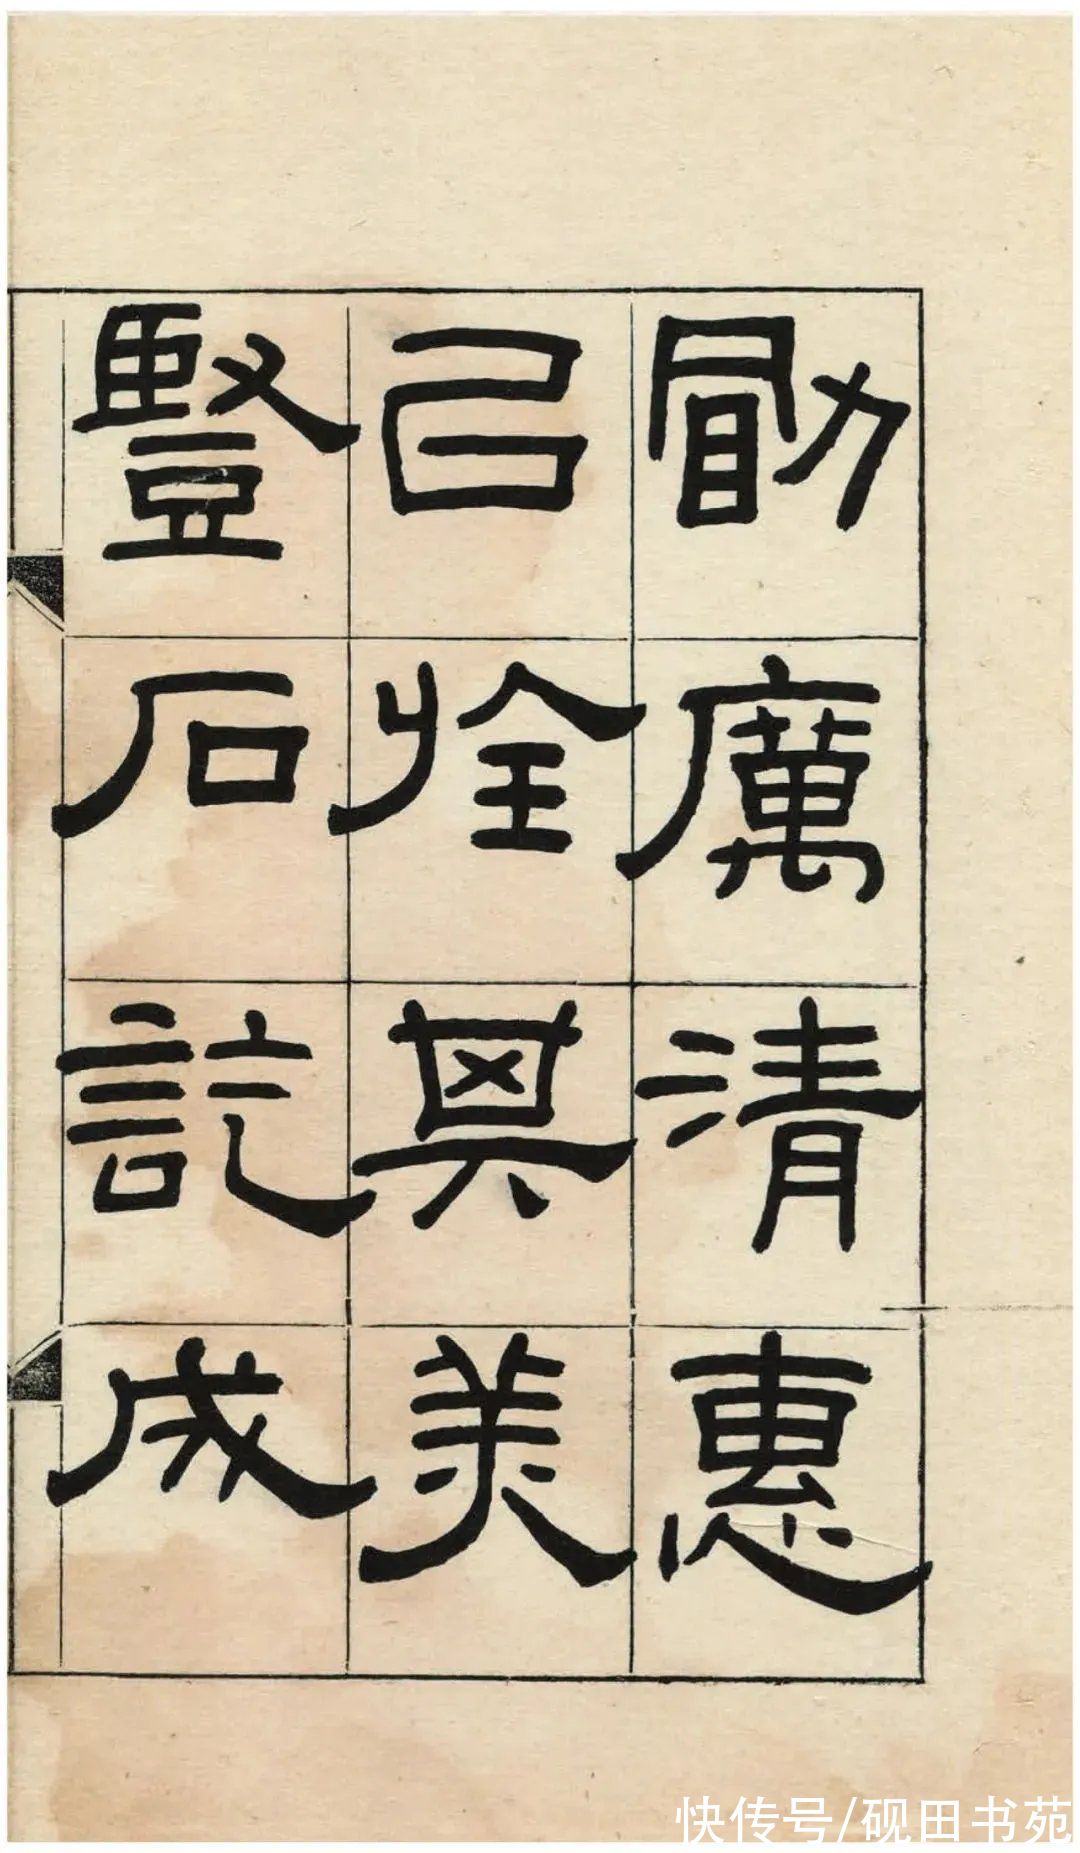 勖厲清惠
己佺其美
豎石訖成
快传号/砚田书苑